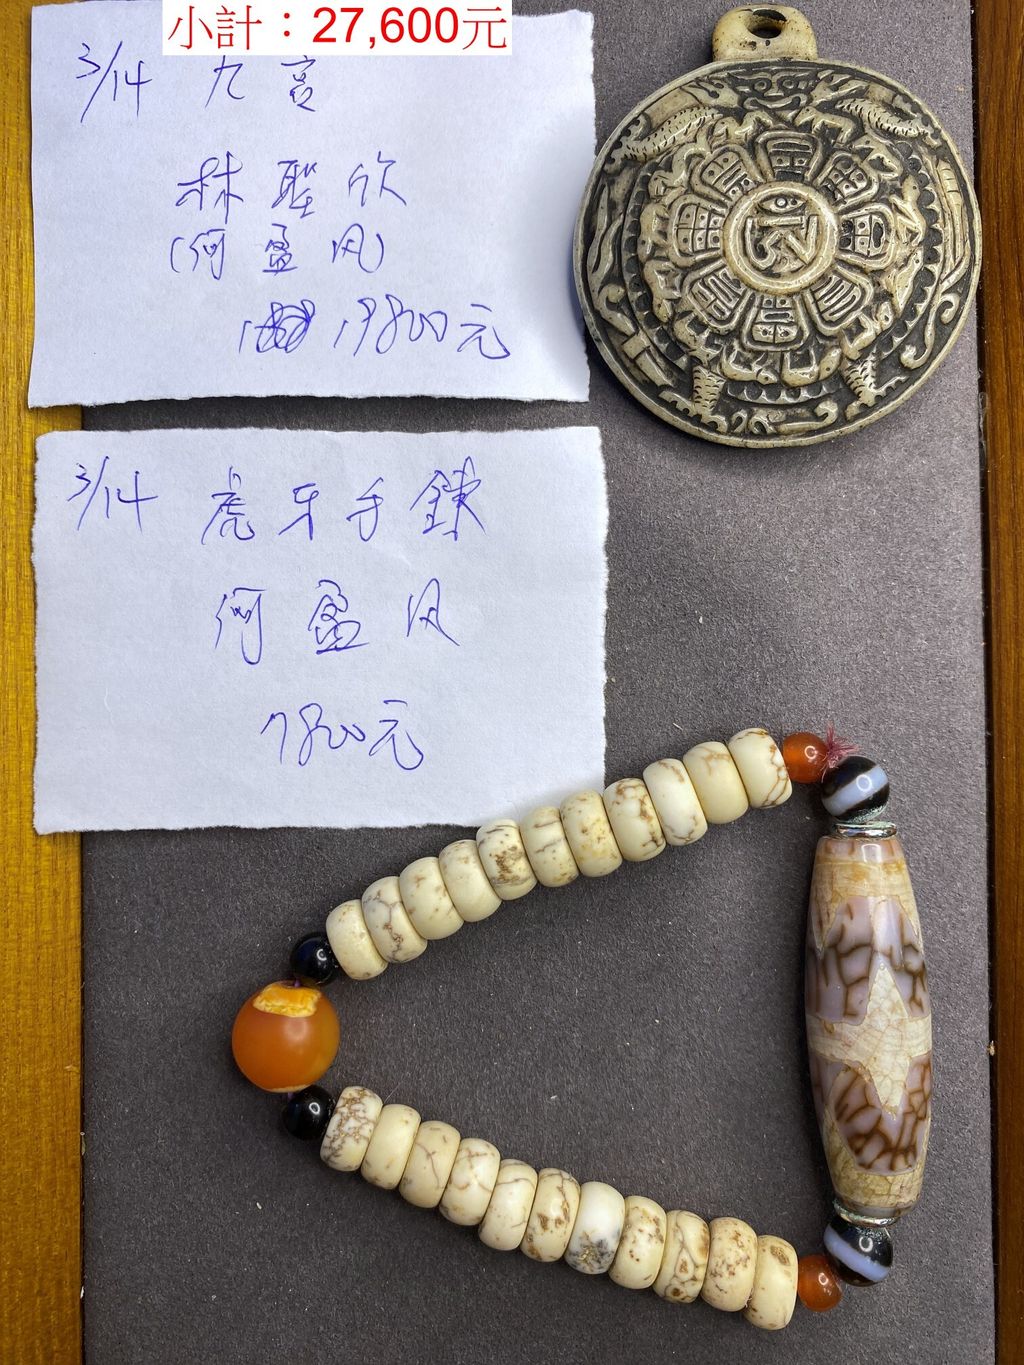 小計：27,600元
3/14 九宮
林聖欣
(何盈风)
19800元
3/14 虎牙手鍊
何盈风
7800元